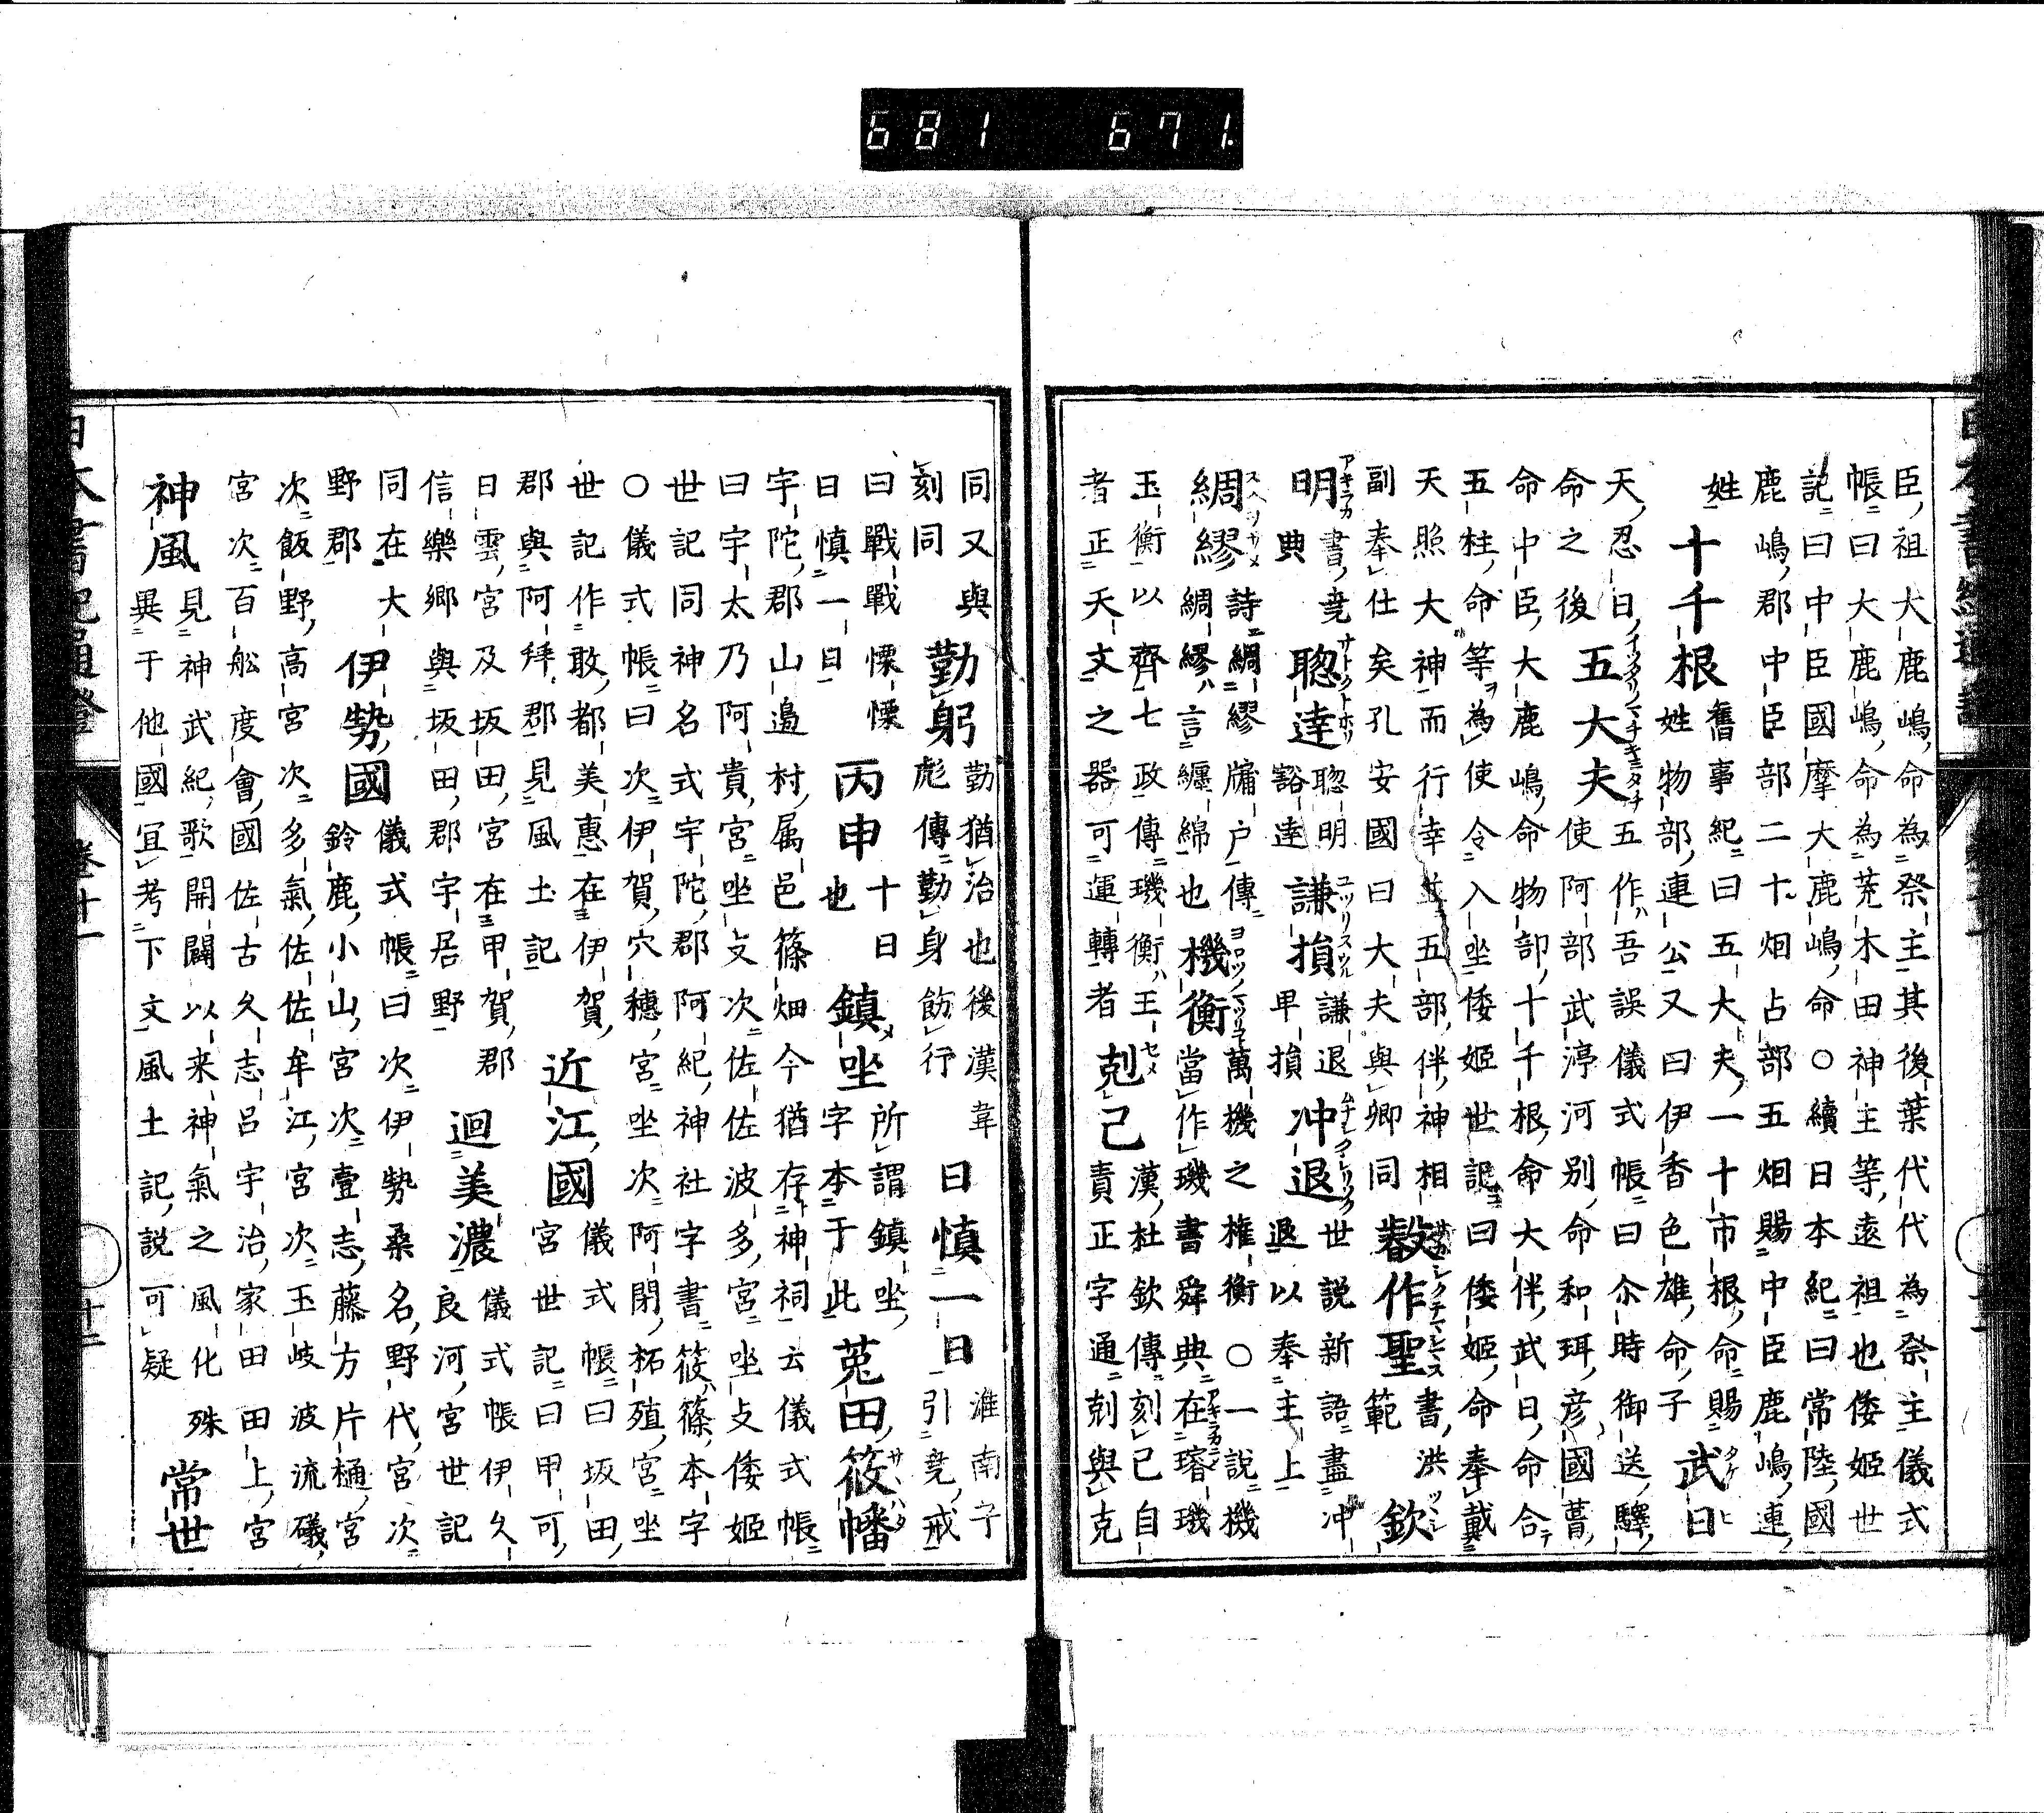 臣祖大鹿嶋命為祭主其後葉代代為祭主儀式
帳曰大鹿嶋命為荒木田神主等遠祖也倭姫世
記曰中臣國摩大鹿嶋命○續日本紀曰常陸國
鹿嶋郡中臣部二十烟占部五烟賜中臣鹿嶋連
姓
十千根
舊事紀曰五大夫一十市根命賜
姓物部連公又曰伊香色雄命子
武日
天忍日
命之後
五大夫
五作吾誤儀式帳曰尒時御送驛
使阿部武渟河別命和珥彦國葺
命中臣大鹿嶋命物部十千根命大伴武日命合
五柱命等為使令入坐倭姫世記曰倭姫命奉戴
天照大神而行幸並五部伴神相
副奉仕矣孔安國曰大夫與卿同
叡作聖
書洪
範
欽
明
書堯
典
聰達
聰明
豁達
謙損
謙退
卑損
冲退
世説新語盡冲
退以奉主上
綢繆
詩綢繆牖戸傳
綢繆言纏綿也
機衡
萬機之權衡○一説機
當作璣書舜典在璿璣
玉衡以齊七政傳璣衡王
者正天文之器可運轉者
剋己
漢杜欽傳刻己自
責正字通剋與克
同又與
刻同
勤躬
勤猶治也後漢韋
彪傳勤身飭行
日慎一日
淮南子
引堯戒
曰戰戰慄慄
日慎一日
丙申
十日
也
鎮坐
所謂鎮坐
字本于此
菟田筱幡
宇陀郡山邉村属邑篠畑今猶存神祠云儀式帳
曰宇太乃阿貴宮坐攴次佐佐波多宮坐攴倭姫
世記同神名式宇陀郡阿紀神社字書筱篠本字
○儀式帳曰次伊賀穴穗宮坐次阿閇柘殖宮坐
世記作敢都美惠在伊賀
郡與阿拜郡見風土記
近江國
儀式帳曰坂田
宮世記曰甲可
日雲宮及坂田宮在甲賀郡
信樂郷與坂田郡宇居野
迴美濃
儀式帳伊久
良河宮世記
同在大
野郡
伊勢國
儀式帳曰次伊勢桑名野代宮次
鈴鹿小山宮次壹志藤方片樋宮
次飯野高宮次多氣佐佐牟江宮次玉岐波流礒
宮次百舩度會國佐古久志呂宇治家田田上宮
神風
見神武紀歌開闢以来神氣之風化殊
異于他國宜考下文風土記説可疑
常世
卷十一
681 671